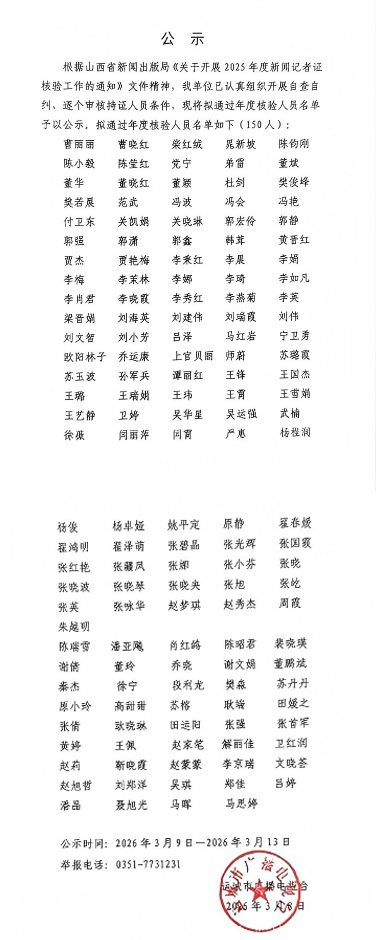 公 示
根据山西省新闻出版局《关于开展2025年度新闻记者证
核验工作的通知》文件精神，我单位已认真组织开展自查自
纠、逐个审核持证人员条件，现将拟通过年度核验人员名单
予以公示。拟通过年度核验人员名单如下（150人）：
曹丽丽 曹晓红 柴红绒 晁新坡 陈钧刚
陈小毅 陈莹红 党宁 弟雷 董斌
董华 董晓红 董颖 杜剑 樊俊峰
樊若晨 范武 冯波 冯会 冯艳
付卫东 关凯娟 关晓琳 郭宏伶 郭静
郭强 郭潇 郭鑫 韩茸 黄晋红
贾杰 贾艳梅 李秉红 李晨 李娟
李梅 李茉林 李娜 李琦 李如凡
李肖君 李晓霞 李秀红 李燕菊 李英
梁晋娟 刘海英 刘建伟 刘瑞霞 刘伟
刘文智 刘小芳 吕泽 马红岩 宁卫勇
欧阳林子 乔运康 上官贝丽 师蔚 苏璐霞
苏玉波 孙军兵 谭丽红 王锋 王国杰
王璐 王瑞娟 王玮 王霄 王雪娟
王艺静 卫婷 吴华星 吴运强 武楠
徐薇 闫丽萍 闫霄 严惠 杨程润
杨俊 杨卓娅 姚平定 原静 翟春媛
翟鸿明 翟泽萌 张碧晶 张光辉 张国霞
张红艳 张疆凤 张娜 张小芬 张晓
张晓波 张晓琴 张晓央 张旭 张屹
张英 张咏华 赵梦琪 赵秀杰 周霞
朱越明
陈瑞雪 潘亚飚 肖红鸽 陈昭君 裴晓瑛
谢倩 董玲 乔晓 谢文娟 董鹏斌
秦杰 徐宁 段利龙 樊淼 苏丹丹
原小玲 高甜甜 苏榕 耿端 田媛之
张倩 耿晓琳 田运阳 张强 张首军
黄婷 王佩 赵家笔 解丽佳 卫红润
赵莉 靳晓霞 赵蒙蒙 李京瑞 文晓荟
赵旭哲 刘郑洋 吴琪 郑佳 吕婷
潘晶 聂旭光 马晖 马思婷
公示时间：2026年3月9日—2026年3月13日
举报电话：0351-7731231
运城市广播电视台
2026年3月8日